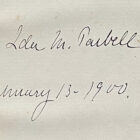 Ida M. Tarbell
nuary 13 - 1900.